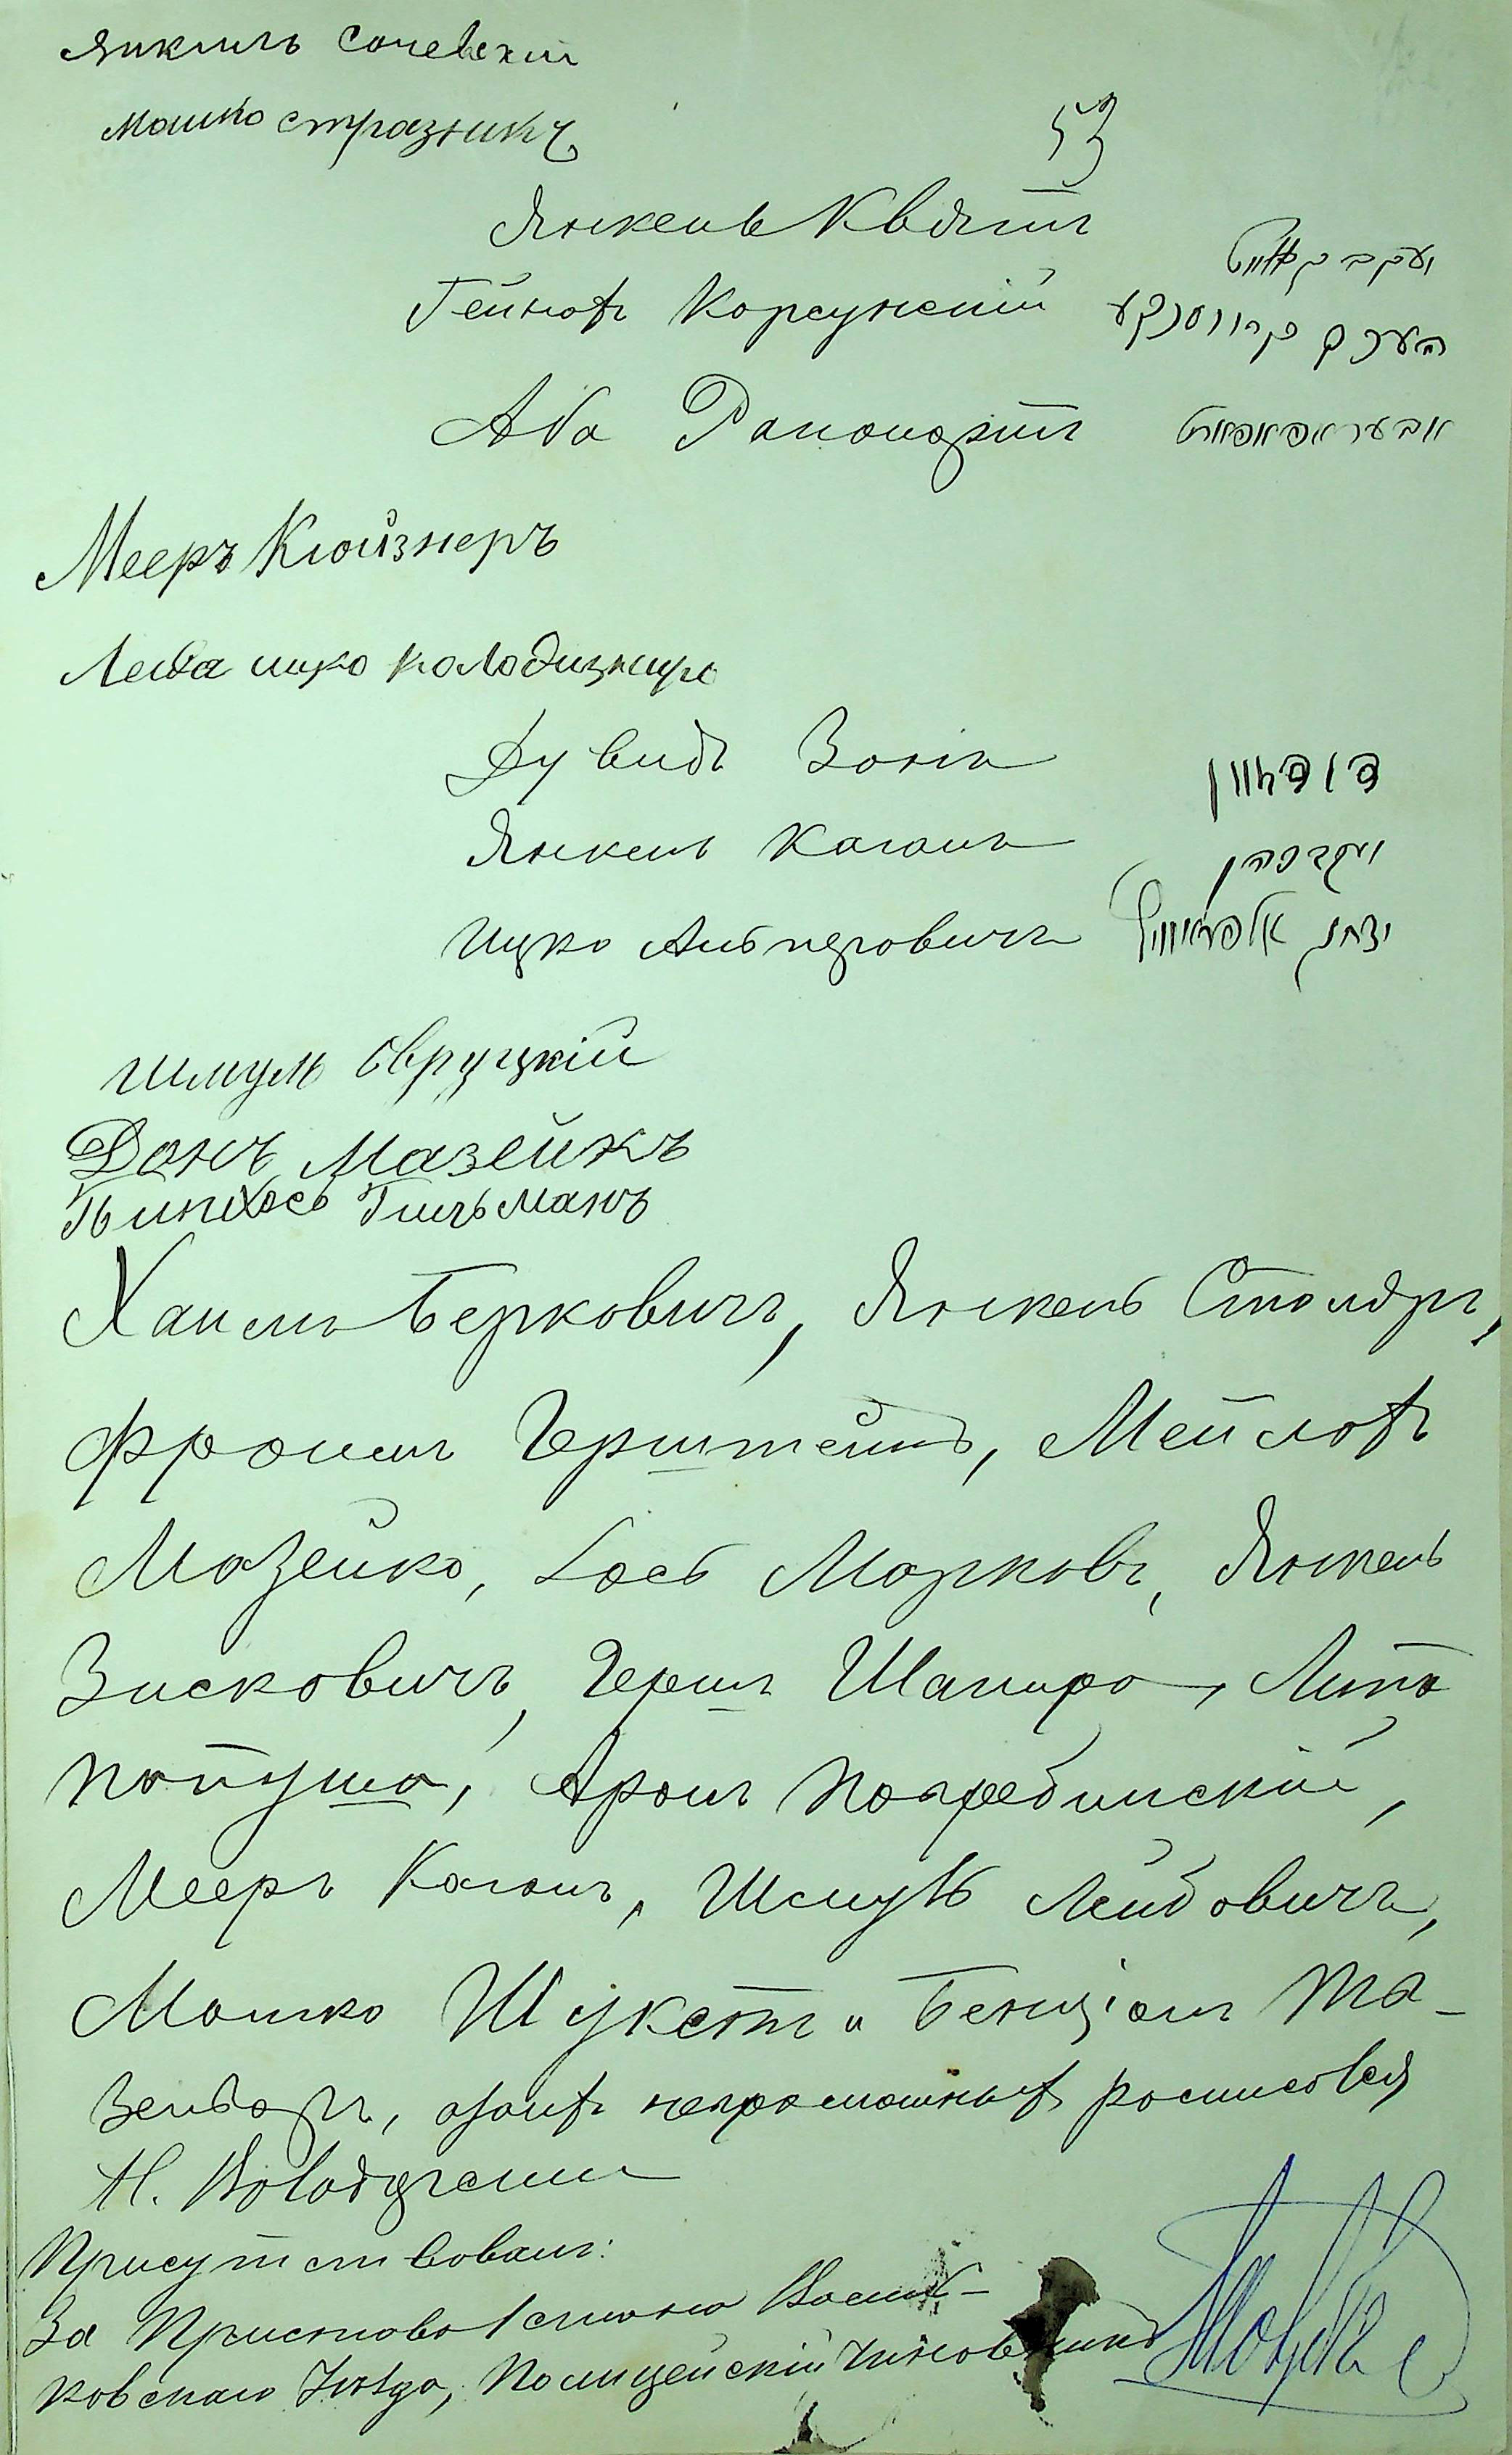 Янкиль Сачевскій
Мошко Стразникъ
53
Янкель Квятъ יעקב קוויט
Гейнохъ Корсунскій
Аба Рапопортъ אבע ראפאפארט
Мееръ Клойзнеръ
Лейба ицко колодизниръ
Дувидъ Зонін
Янкель Каганъ יעקב כהן
Ицко Альперовичъ יצחק אלפעראוויץ
Шмуль Овруцкій
Донъ Мазейкъ
Пинхосъ Гительманъ
Хаимъ Беркович, Янкель Столяръ,
Фроимъ Герштейнъ, Мейлохъ
Мазейко, Іось Марковъ, Янкель
Зисковичъ, Герш Шапиро, Липа
Потуша, Аронъ Погребинскій,
Мееръ Каганъ, Шмуль Лейбовичъ,
Мошко Шукстъ и Бенціонъ Ма-
зенбаръ, а за нихъ неграмотныхъ росписовся
Н.
Присутствовалъ:
За Пристава 1 стана Василь-
ковскаго уѣзда, Полицейскій Чиновникъ